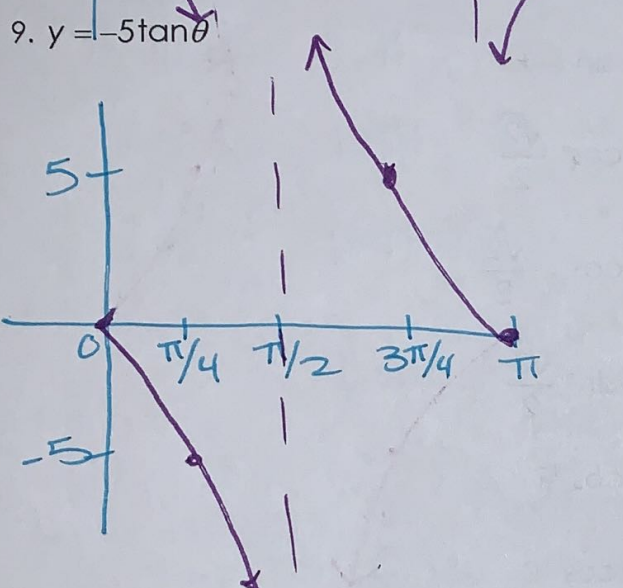 9. y = -5tanθ
5
0 π/4 π/2 3π/4 π
-5